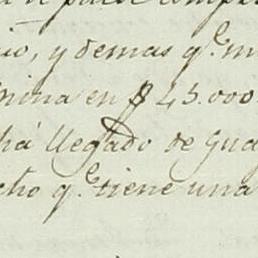 io, y demas q.e m
mina en $ 45.000
ha llegado de Gua
cho q.e tiene una